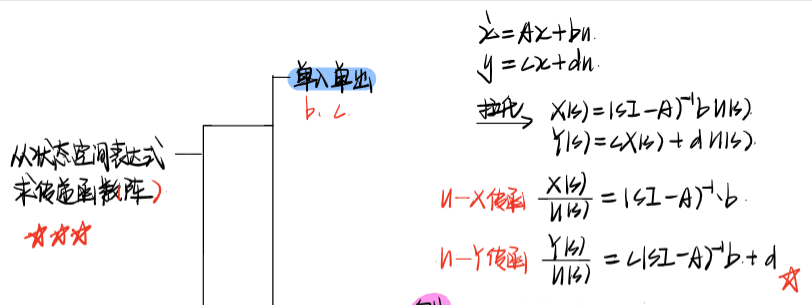 从状态空间表达式
求传递函数(阵)
☆☆☆
单入单出
b、c
ẋ=Ax+bu
y=cx+du
拉氏→ X(s)=(sI-A)⁻¹bU(s)
Y(s)=cX(s)+dU(s)
u-X传函 X(s)/U(s)=(sI-A)⁻¹·b
u-Y传函 Y(s)/U(s)=c(sI-A)⁻¹b+d ☆